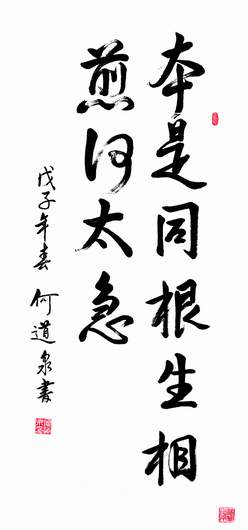 本是同根生相
煎何太急
戊子年春 何道泉书